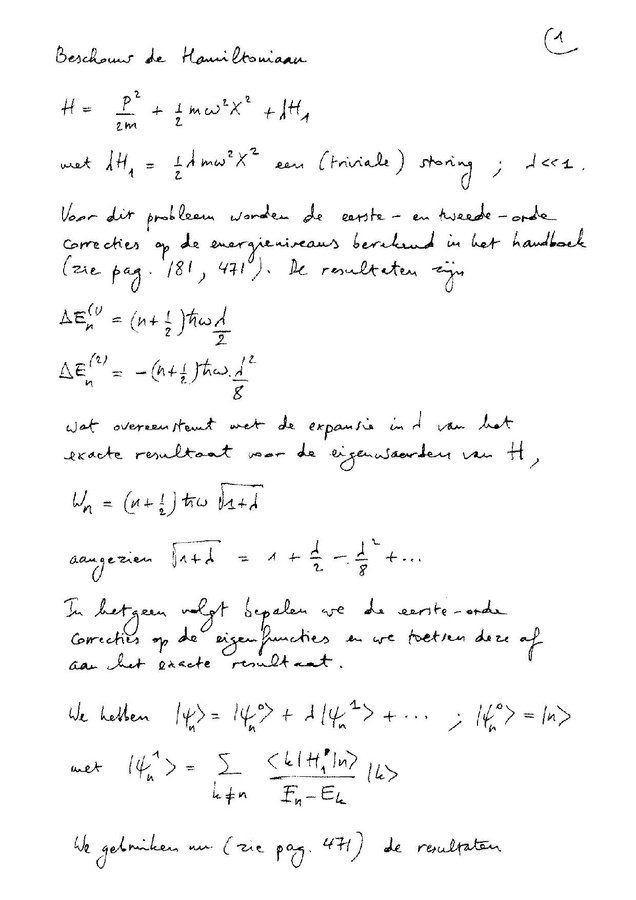 (1
Beschouw de Hamiltoniaan
H = P²/2m + ½ mω²X² + λH₁
met λH₁ = ½ λ mω²X² een (triviale) storing ; λ<<1.
Voor dit probleem worden de eerste- en tweede-orde
correcties op de energieniveaus berekend in het handboek
(zie pag. 181, 471). De resultaten zijn
ΔEₙ⁽¹⁾ = (n+½)ħω λ/2
ΔEₙ⁽²⁾ = -(n+½)ħω.λ²/8
wat overeenstemt met de expansie in λ van het
exacte resultaat voor de eigenwaarden van H,
Wₙ = (n+½) ħω √(1+λ)
aangezien √(1+λ) = 1 + λ/2 - λ²/8 + ...
In hetgeen volgt bepalen we de eerste-orde
correcties op de eigenfuncties en we toetsen deze af
aan het exacte resultaat.
We hebben |ψₙ> = |ψₙ⁰> + λ|ψₙ¹> + ... ; |ψₙ⁰> = |n>
met |ψₙ¹> = Σ_{k≠n} <k|H₁|n>/(Eₙ-Eₖ) |k>
We gebruiken nu (zie pag. 471) de resultaten